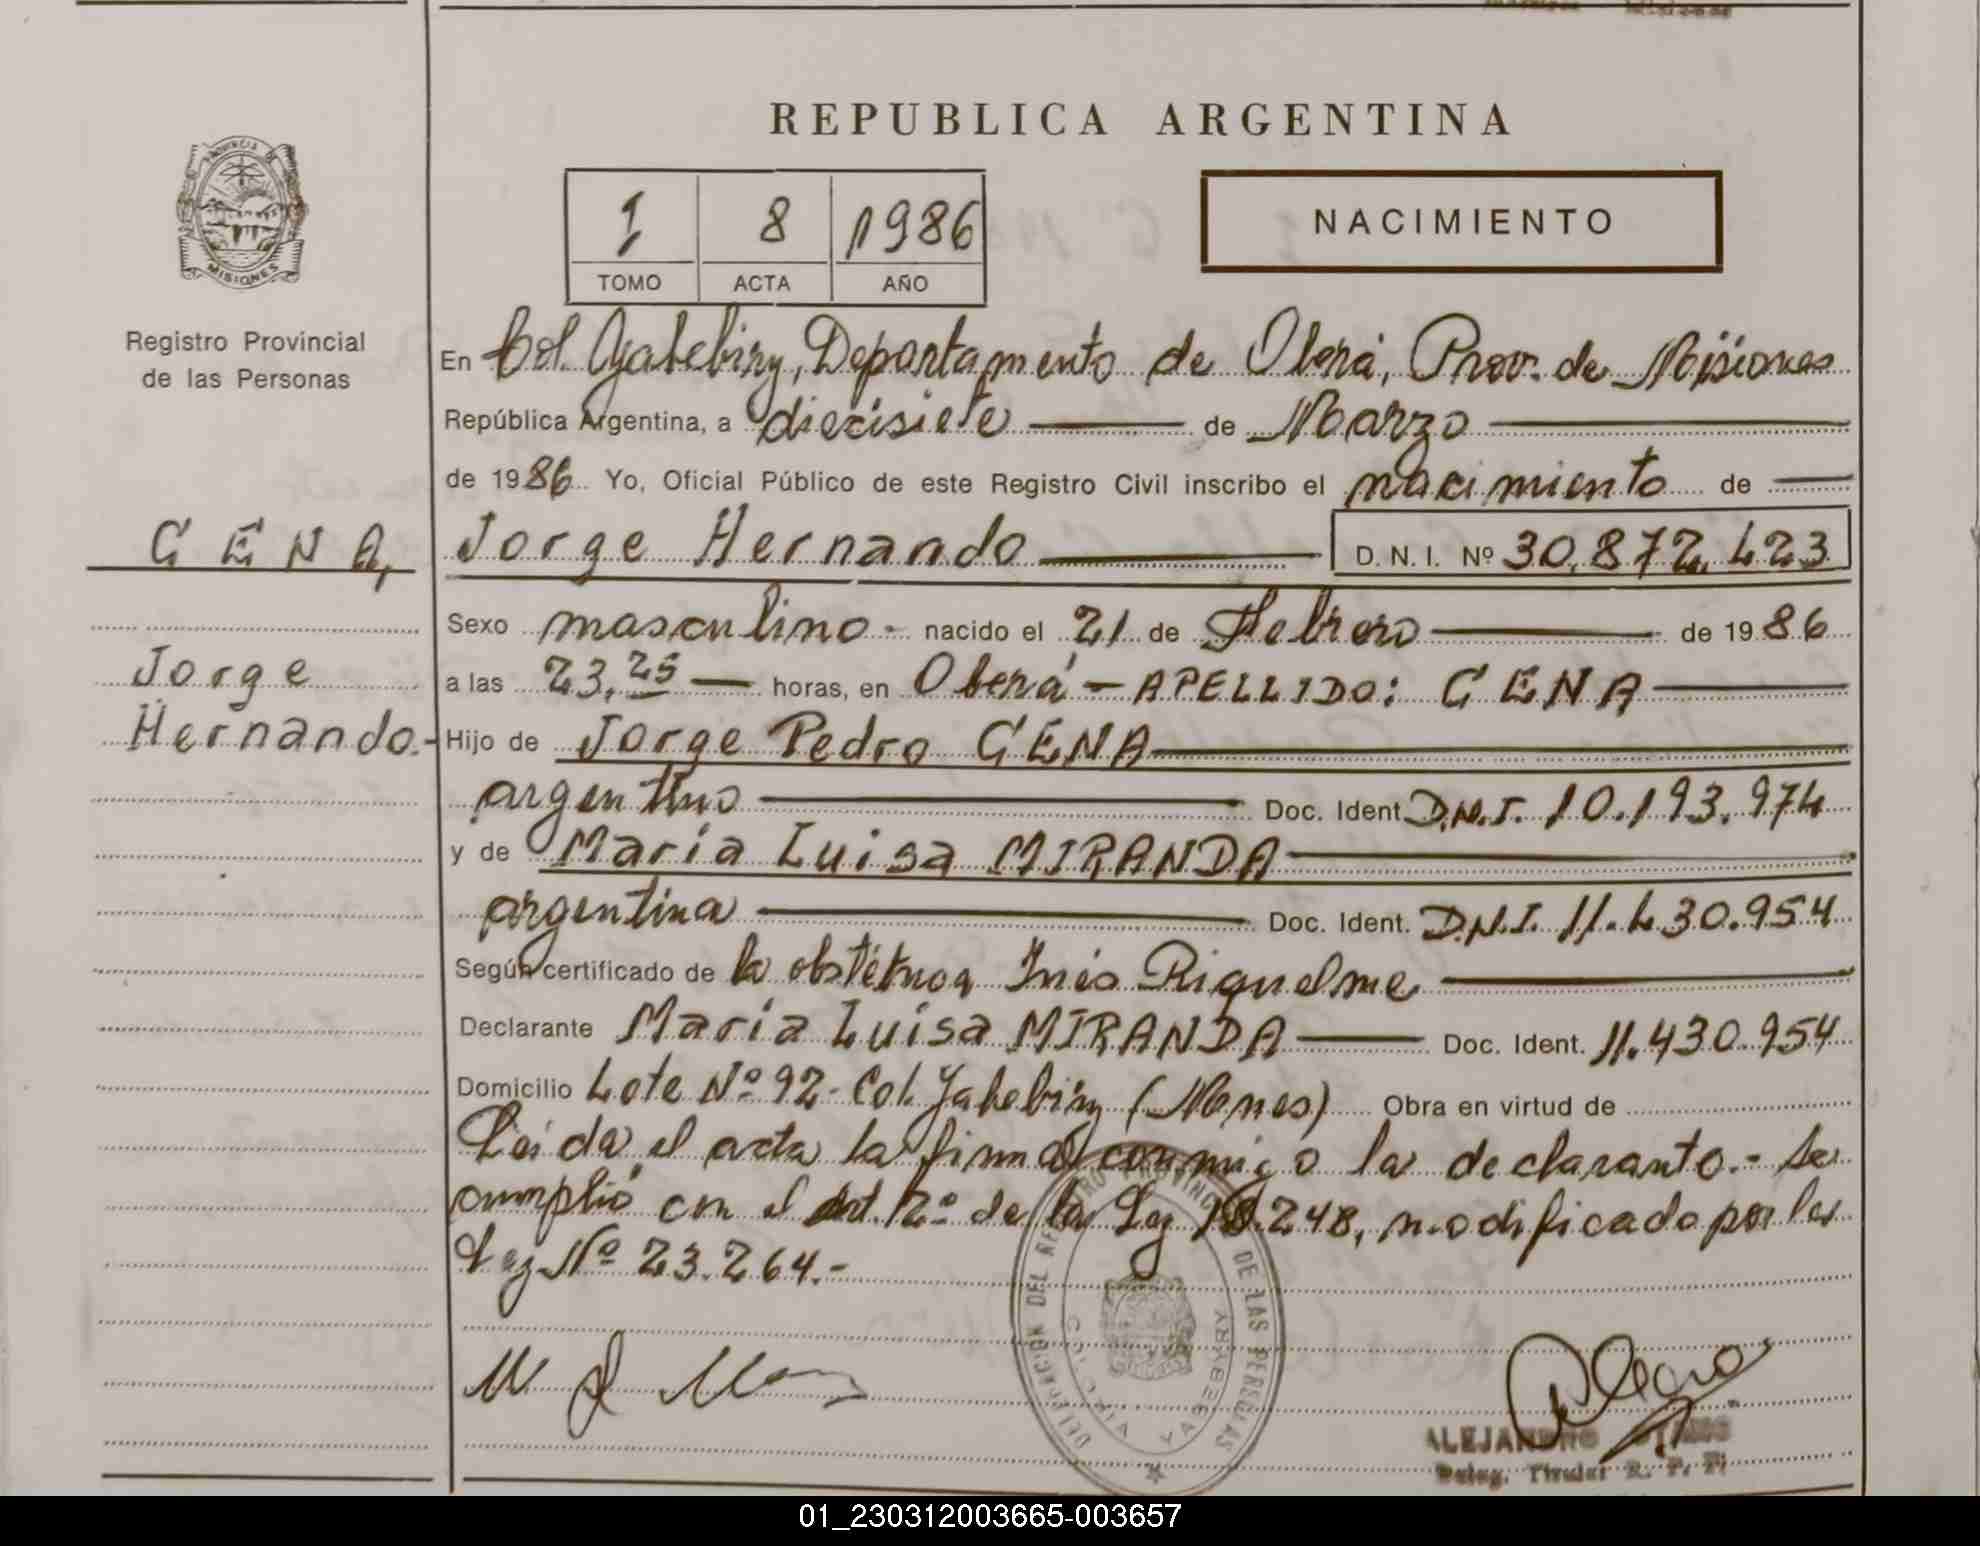 REPUBLICA ARGENTINA
PROVINCIA DE
MISIONES
Registro Provincial
de las Personas
1 8 1986
TOMO ACTA AÑO
NACIMIENTO
En Col. Yabebiry, Departamento de Oberá, Prov. de Misiones
República Argentina, a diecisiete de Marzo
de 1986 Yo, Oficial Público de este Registro Civil inscribo el nacimiento de
GENA,
Jorge Hernando D. N. I. Nº 30.872.423
Sexo masculino - nacido el 21 de Febrero de 1986
Jorge
a las 23,25 horas, en Oberá - APELLIDO: GENA
Hernando.-
Hijo de Jorge Pedro GENA
argentino Doc. Ident. D.N.I. 10.193.974
y de María Luisa MIRANDA
argentina Doc. Ident. D.N.I. 11.430.954
Según certificado de la obstétrica Inés Riquelme
Declarante María Luisa MIRANDA Doc. Ident. 11.430.954
Domicilio Lote Nº 92 - Col. Yabebiry (Mnes) Obra en virtud de
Leída el acta la firma conmigo la declarante.- Se
cumplió con el Art. 2º de la Ley 18.248, modificado por la
Ley Nº 23.264.-
DELEGACION DEL REGISTRO PROVINCIAL DE LAS PERSONAS
COLONIA YABEBYRY
ALEJANDRO
Deleg. Titular R. P. P.
01_230312003665-003657